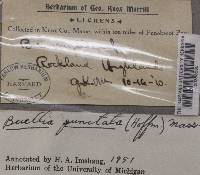 Herbarium of Geo. Knox Merrill
LICHENS
Collected in Knox Co., Maine, within ten miles of Penobscot Bay
Rockland Highlands
FARLOW HERBARIUM
HARVARD
Buellia punctata (Hoffm) Mass
Annotated by H. A. Imshaug, 1951
Herbarium of the University of Michigan